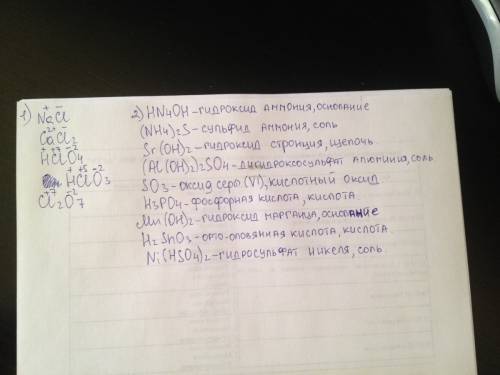 1)
+ -
NaCl
2+ -
CaCl2
+ +7 -2
HClO4
+ +5 -2
HClO3
+7 -2
Cl2O7
2) HN4OH-гидроксид аммония, основание
(NH4)2S-сульфид аммония, соль
Sr(OH)2-гидроксид стронция, щелочь
(Al(OH)2)2SO4-дигидроксосульфат алюминия, соль
SO3-оксид серы (VI), кислотный оксид
H3PO4-фосфорная кислота, кислота
Mn(OH)2-гидроксид марганца, основание
H2SnO3-орто-оловянная кислота, кислота
Ni(HSO4)2-гидросульфат никеля, соль